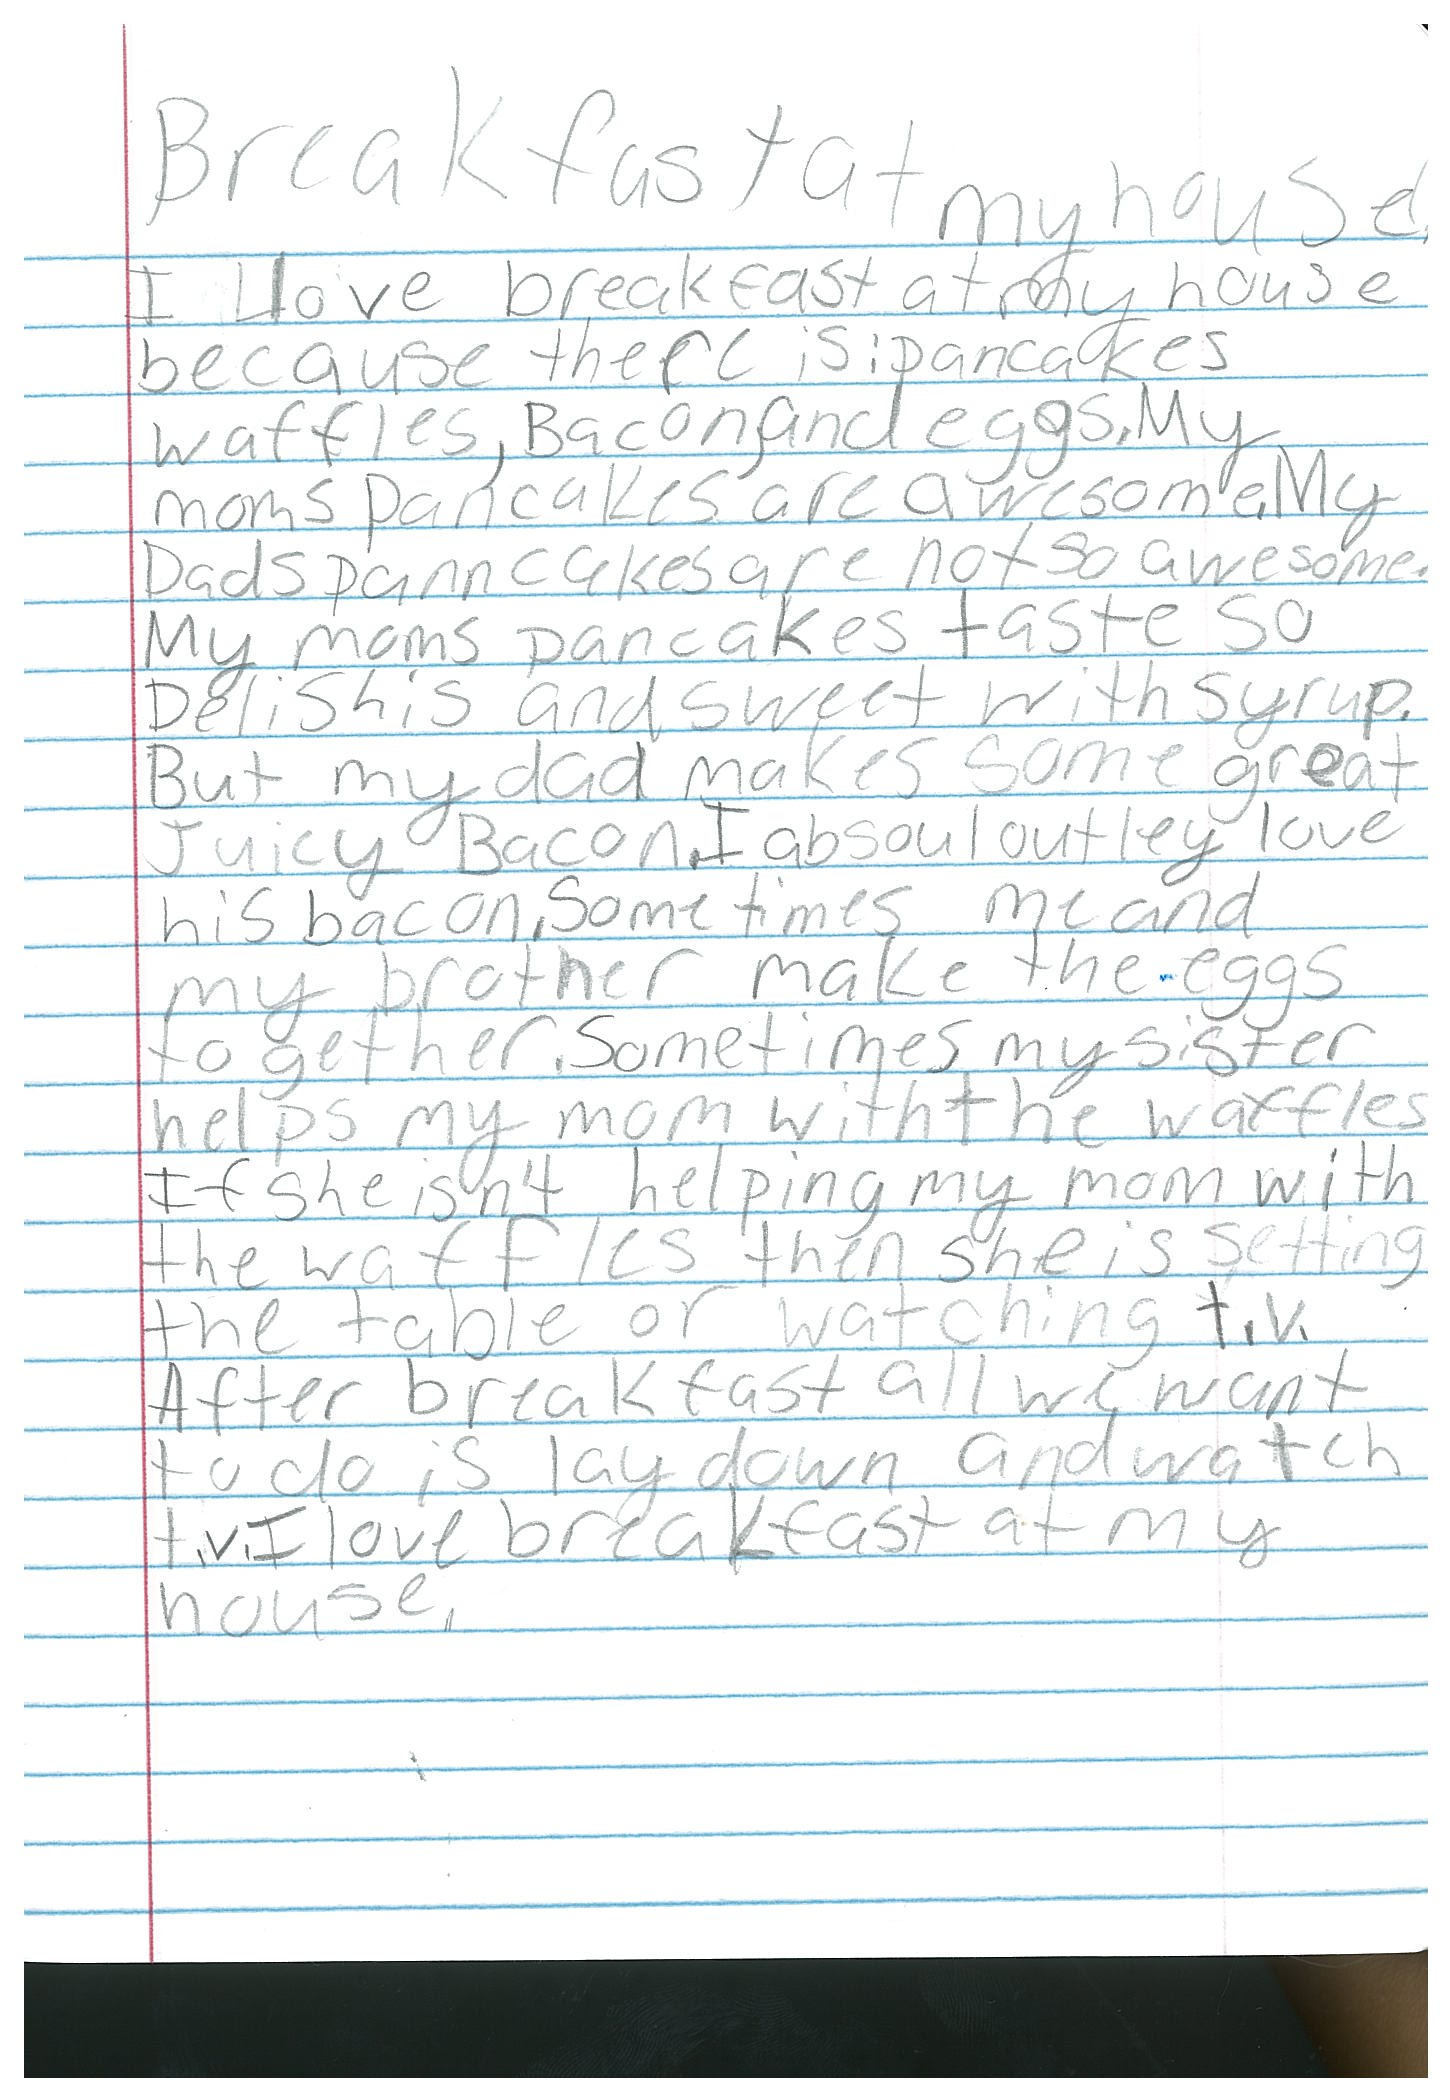 Breakfast at my house.
I Llove breakfast at my house
because there is: pancakes
waffles, Bacon, and eggs. My
moms pancakes are awesome. My
Dads panncakes are not so awesome.
My moms pancakes taste so
Delishis and sweet with syrup.
But my dad makes some great
Juicy Bacon. I absouloutley love
his bacon. Sometimes me and
my brother make the eggs
together. Sometimes my sister
helps my mom with the waffles
If she isn't helping my mom with
the waffles then she is setting
the table or watching t.v.
After breakfast all we want
to do is lay down and watch
t.v. I love breakfast at my
house.